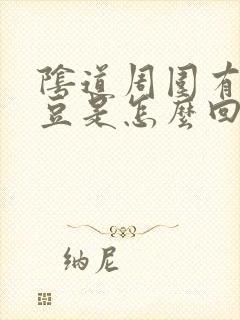 陰道周围有
豆是怎麼回
纳尼